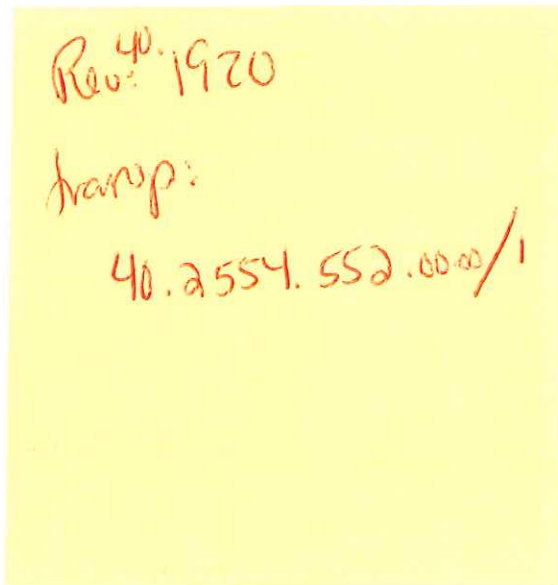 Rev: 40.1920
transp:
40.2554.552.0000/1